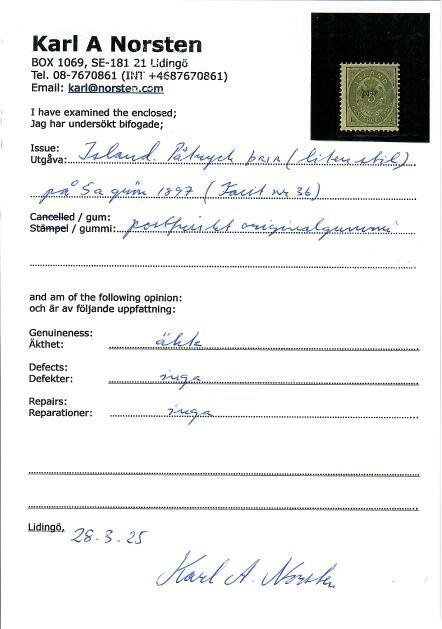 Karl A Norsten
BOX 1069, SE-181 21 Lidingö
Tel. 08-7670861 (INT +4687670861)
Email: karl@norsten.com
I have examined the enclosed;
Jag har undersökt bifogade;
Issue:
Utgåva: Island. Påtryck þrír (liten stil)
på 5a grön 1897 (Facit nr 36)
Cancelled / gum:
Stämpel / gummi: postfriskt originalgummi
and am of the following opinion:
och är av följande uppfattning:
Genuineness:
Äkthet: äkta
Defects:
Defekter: inga
Repairs:
Reparationer: inga
Lidingö, 28.3.25
Karl A. Norsten